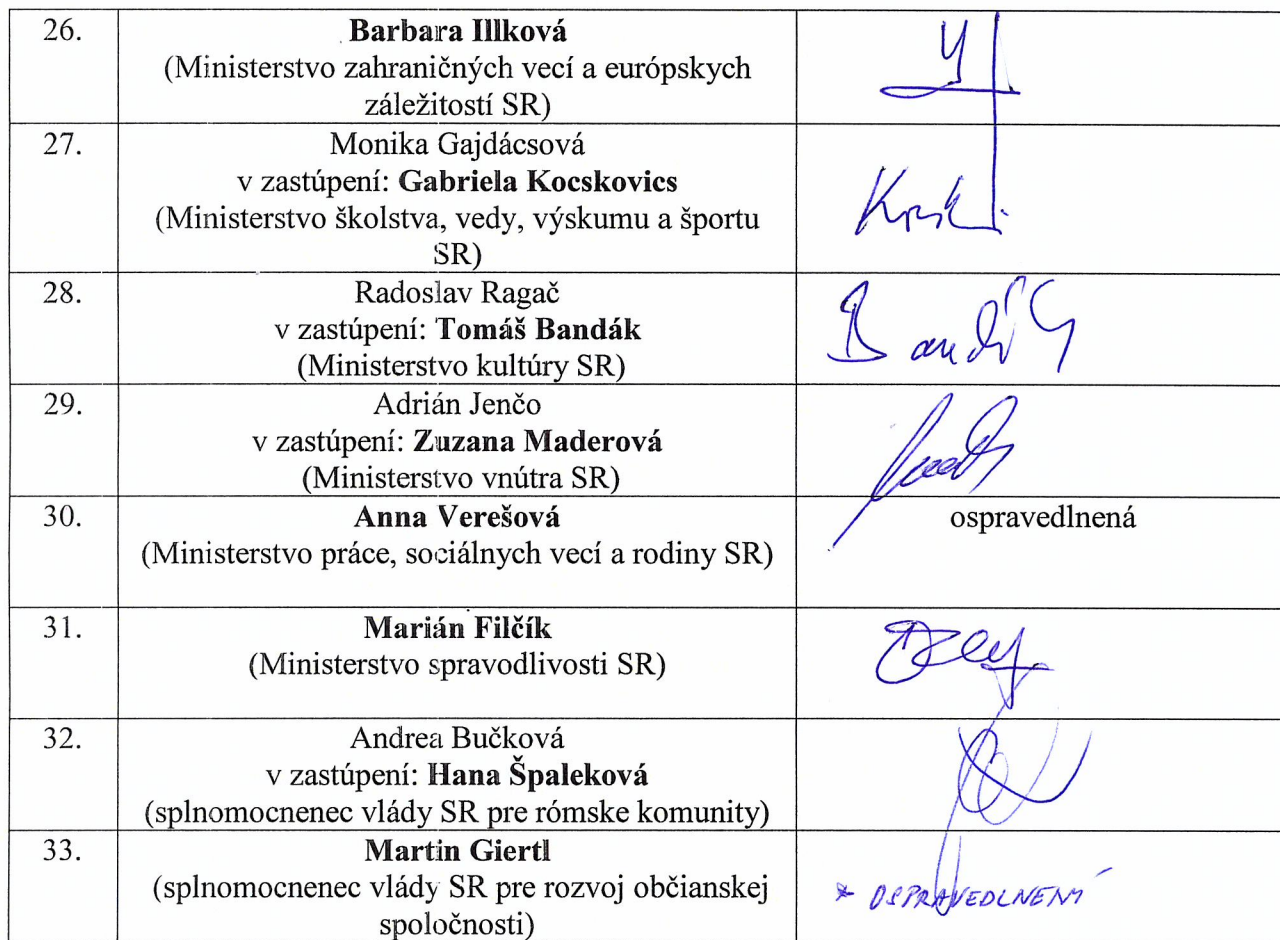 26.
Barbara Illková
(Ministerstvo zahraničných vecí a európskych
záležitostí SR)
27.
Monika Gajdácsová
v zastúpení: Gabriela Kocskovics
(Ministerstvo školstva, vedy, výskumu a športu
SR)
28.
Radoslav Ragač
v zastúpení: Tomáš Bandák
(Ministerstvo kultúry SR)
29.
Adrián Jenčo
v zastúpení: Zuzana Maderová
(Ministerstvo vnútra SR)
30.
Anna Verešová
(Ministerstvo práce, sociálnych vecí a rodiny SR)
ospravedlnená
31.
Marián Filčík
(Ministerstvo spravodlivosti SR)
32.
Andrea Bučková
v zastúpení: Hana Špaleková
(splnomocnenec vlády SR pre rómske komunity)
33.
Martin Giertl
(splnomocnenec vlády SR pre rozvoj občianskej
spoločnosti)